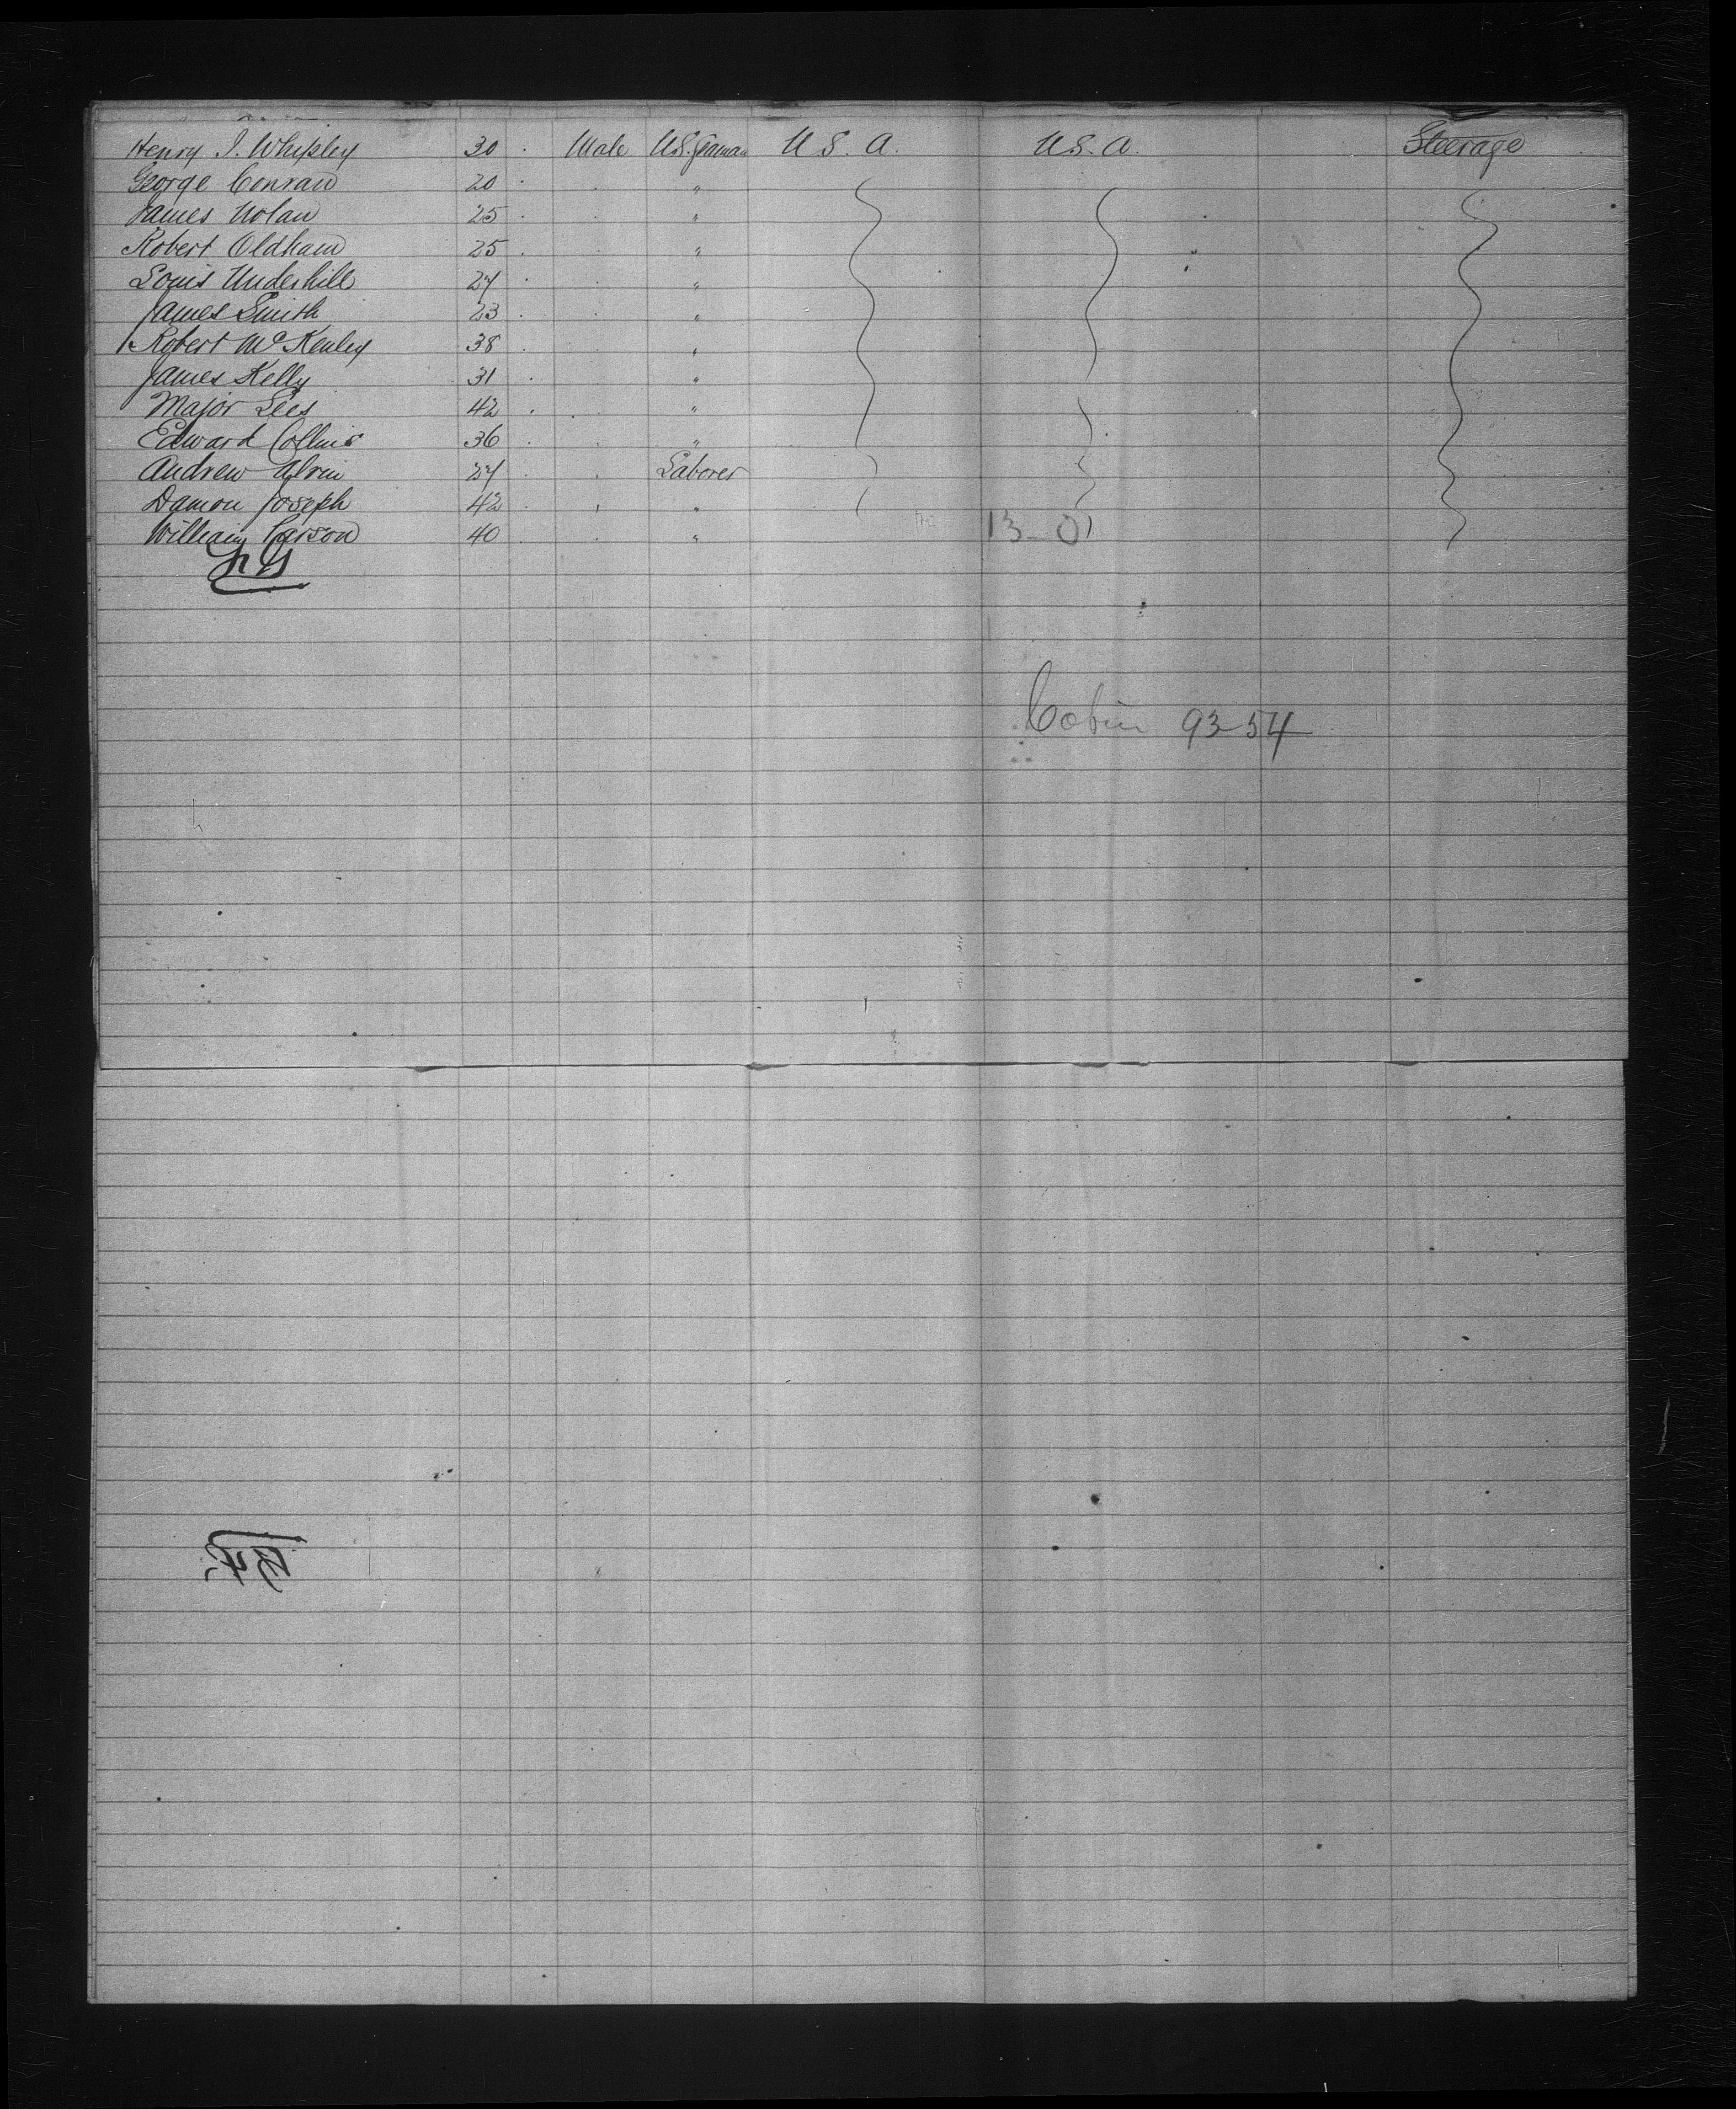 Henry I. Whipley 30 Male U.S. Seaman U.S.A. U.S.A. Steerage
George Conrad 20 "
James Nolan 25 "
Robert Oldham 25 "
Louis Underhill 27 "
James Smith 23 "
Robert McKenley 38 "
James Kelly 31 "
Major Lees 42 "
Edward Collins 36 "
Andrew 27 Laborer
Damon Joseph 42 "
William Carson 40 " 13-0
Cabin 93-54
54